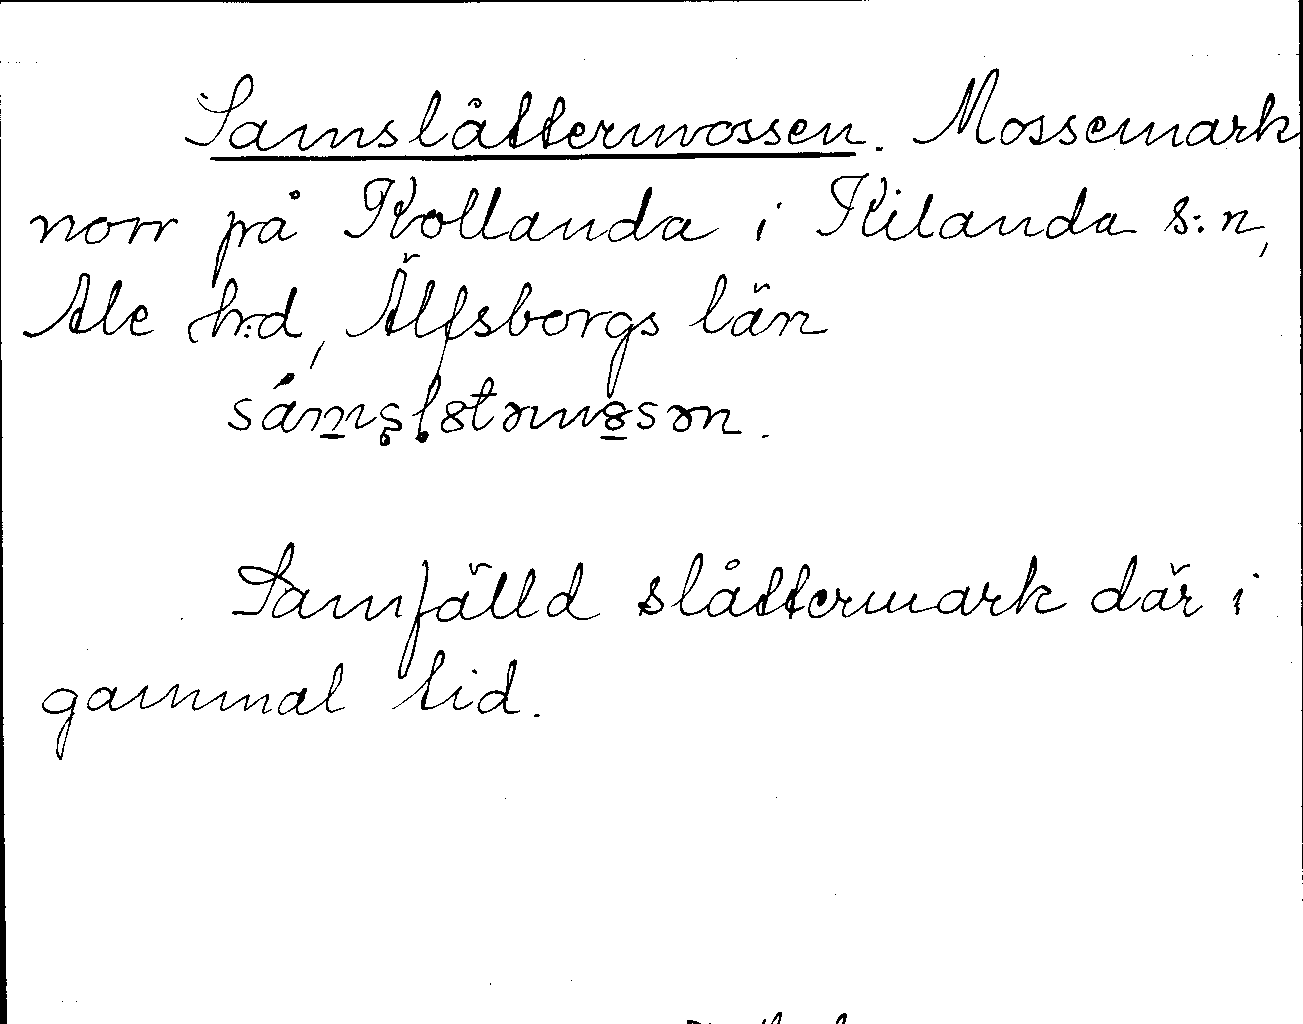 Samslåttermossen. Mossemark
norr på Kollanda i Kilanda s:n,
Ale h:d, Älfsborgs län

Samfälld slåttermark där i
gammal tid.